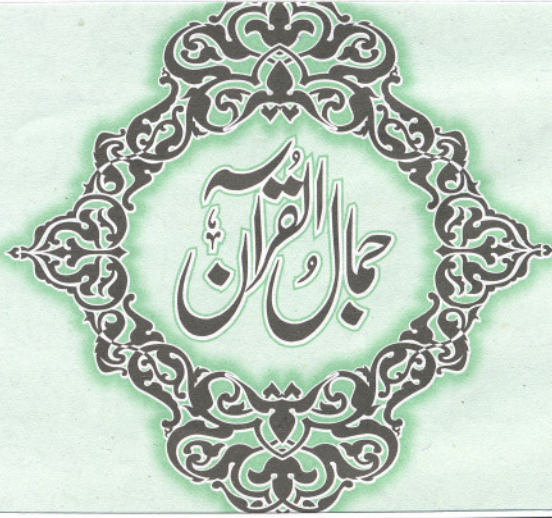 جمالُ القُرآن